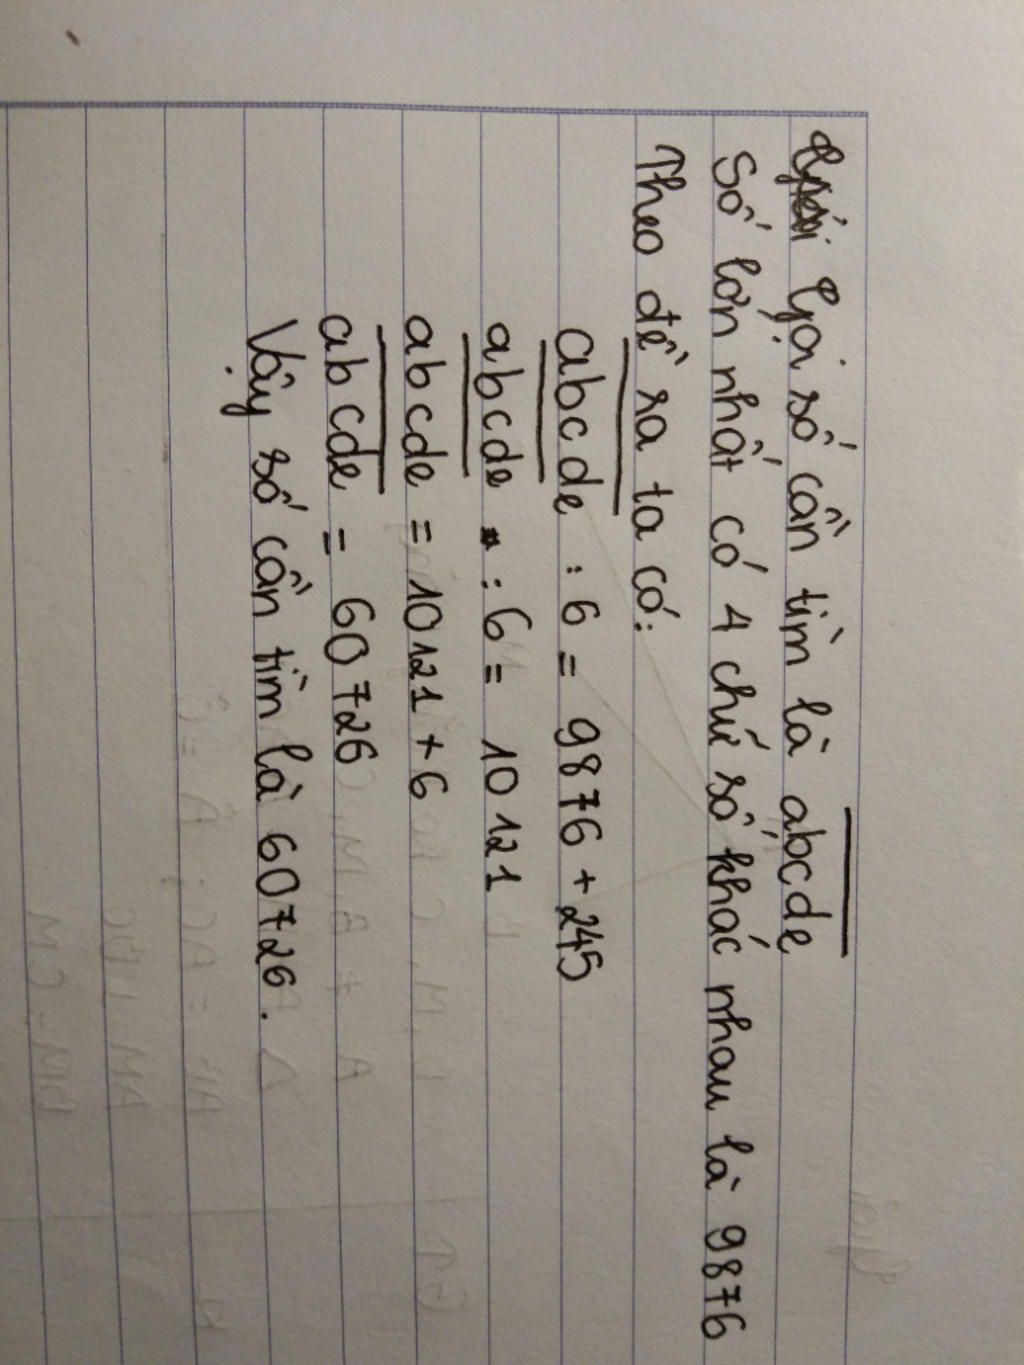 Gọi số cần tìm là abcde
Số lớn nhất có 4 chữ số khác nhau là 9876
Theo đề ra ta có:
abcde : 6 = 9876 + 245
abcde : 6 = 10121
abcde = 10121 + 6
abcde = 60726
Vậy số cần tìm là 60726.